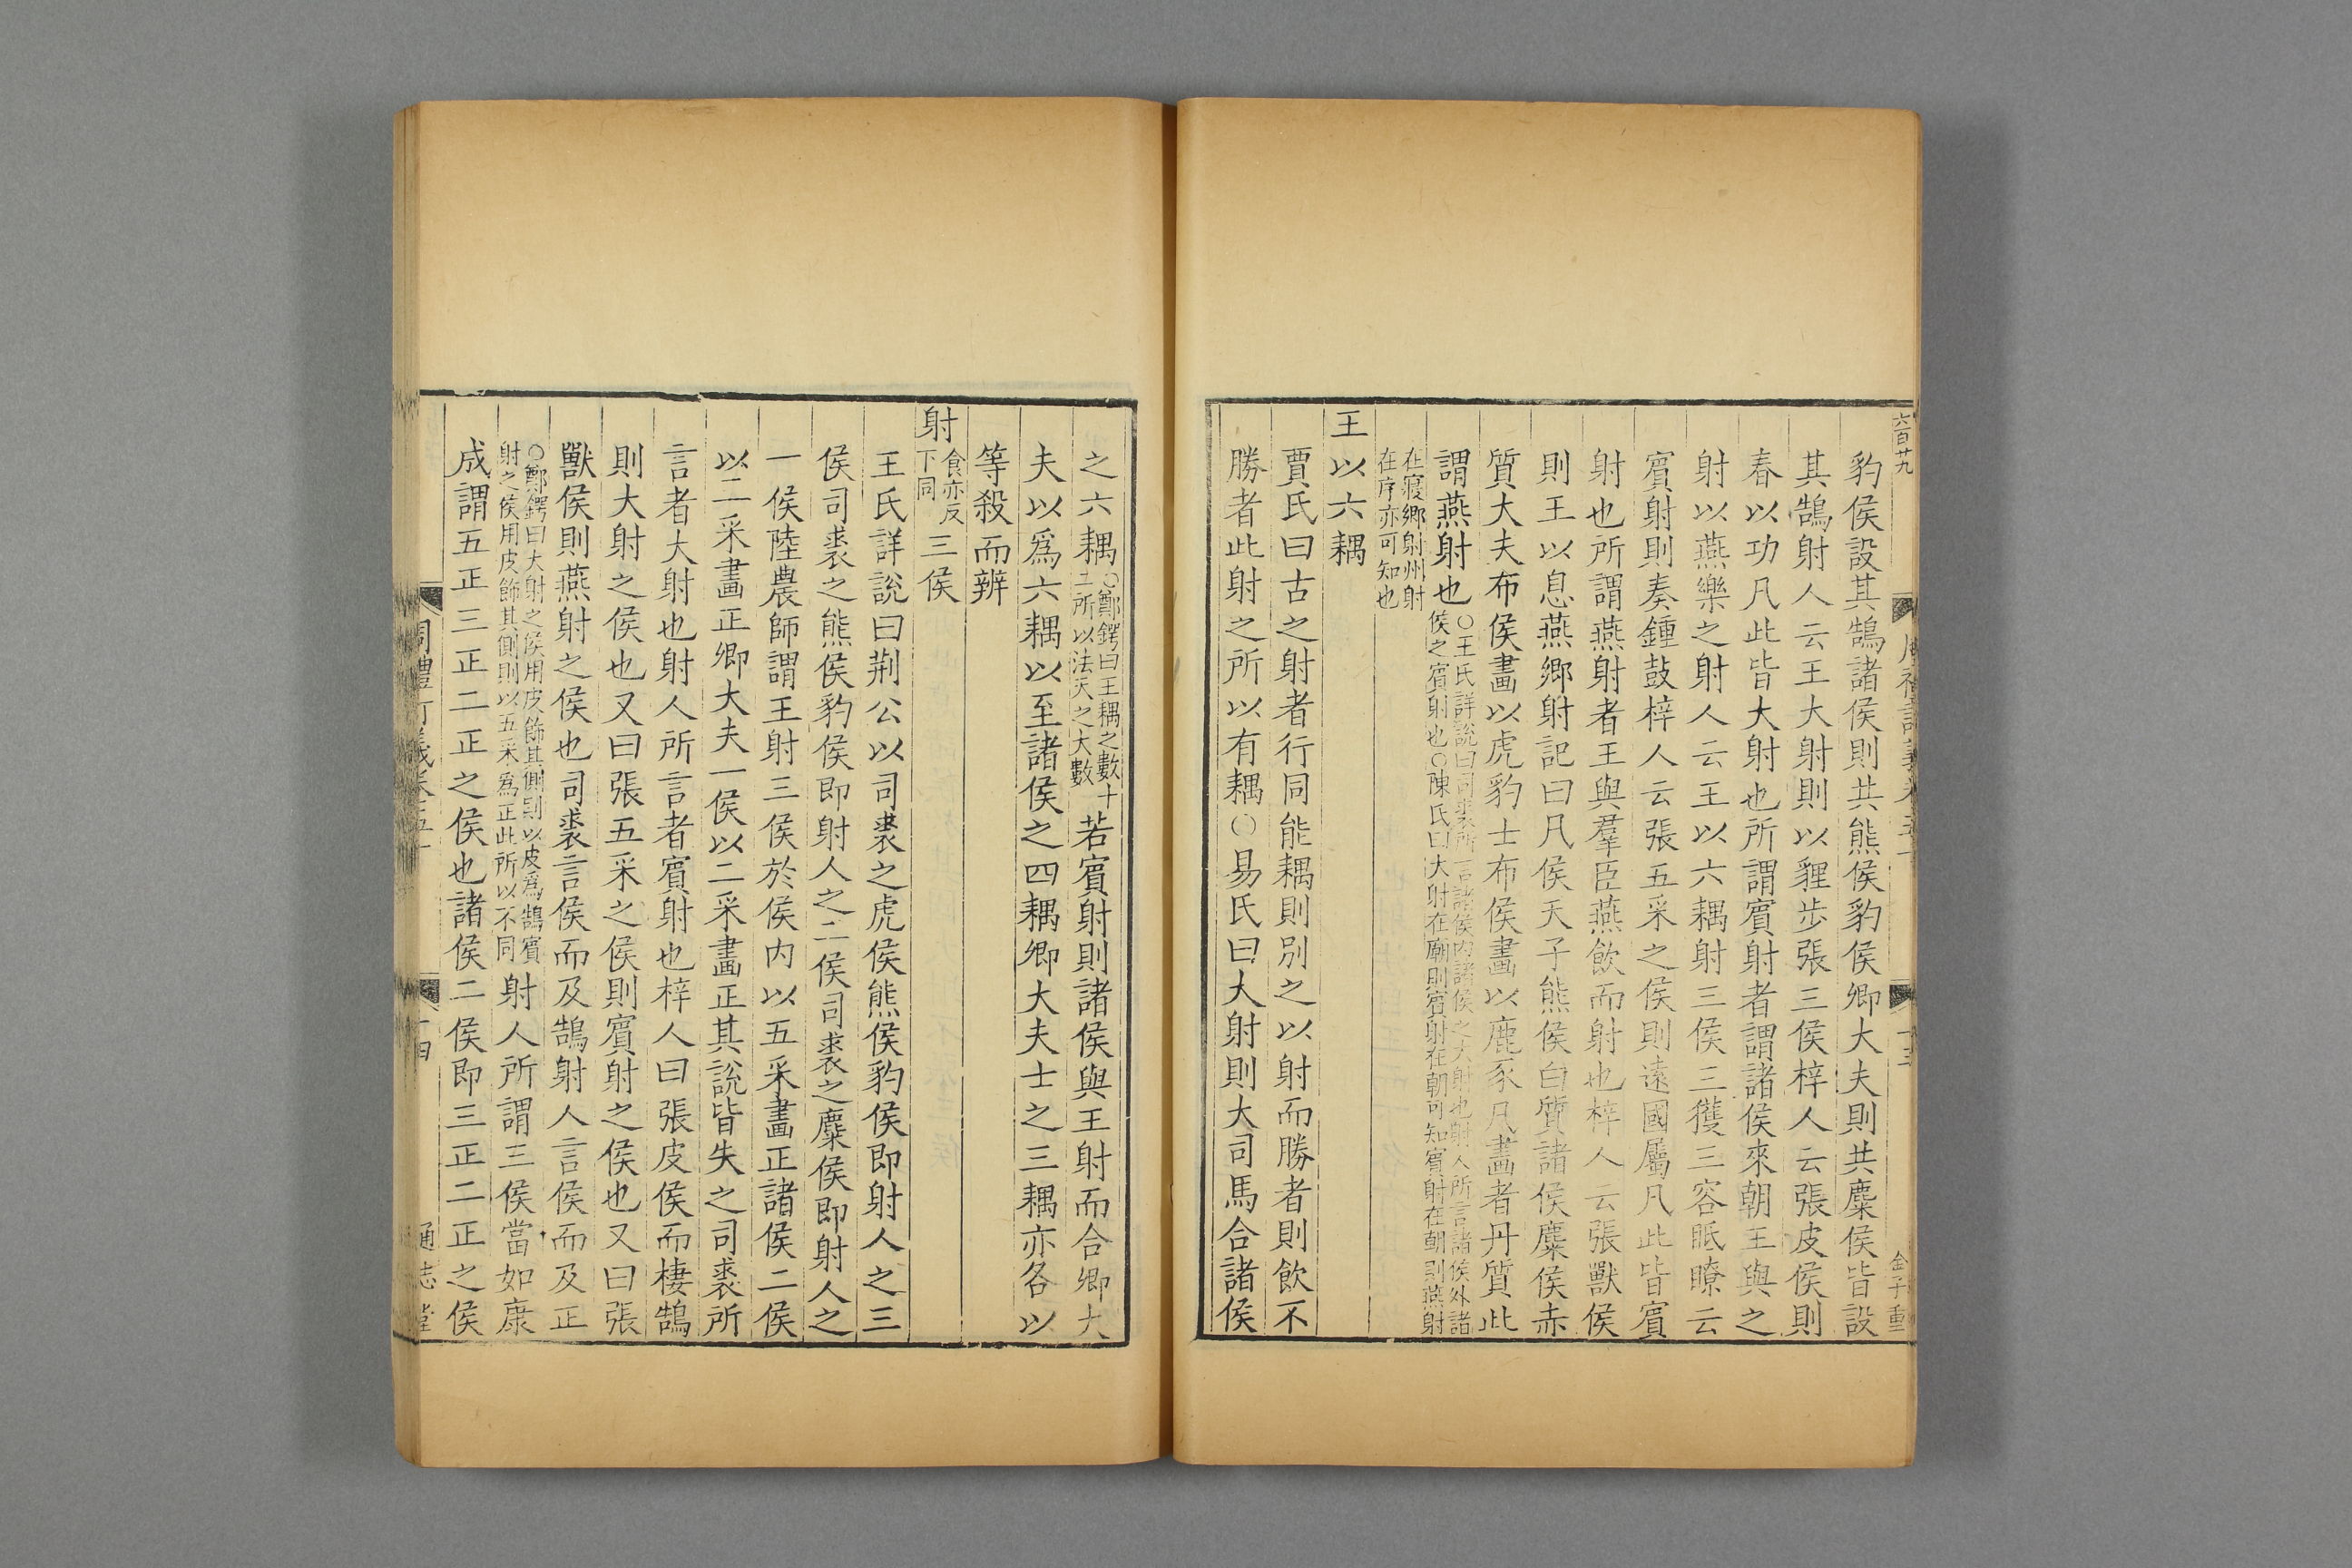 六百廿九
金子重
豹侯設其鵠諸侯則共熊侯豹侯卿大夫則共麋侯皆設
其鵠射人云王大射則以貍步張三侯梓人云張皮侯則
春以功凡此皆大射也所謂賓射者謂諸侯來朝王與之
射以燕樂之射人云王以六耦射三侯三獲三容眡瞭云
賓射則奏鍾鼓梓人云張五采之侯則遠國屬凡此皆賓
射也所謂燕射者王與羣臣燕飲而射也梓人云張獸侯
則王以息燕鄉射記曰凡侯天子熊侯白質諸侯麋侯赤
質大夫布侯畫以虎豹士布侯畫以鹿豕凡畫者丹質此
謂燕射也
○王氏詳說曰司裘所言諸侯內諸侯之大射也射人所言諸侯外諸
侯之賓射也○陳氏曰大射在廟則賓射在朝可知賓射在朝則燕射
在寢鄉射州射
在序亦可知也
王以六耦
賈氏曰古之射者行同能耦則別之以射而勝者則飲不
勝者此射之所以有耦○易氏曰大射則大司馬合諸侯
之六耦
○鄭鍔曰王耦之數十
二所以法天之大數
若賓射則諸侯與王射而合卿大
夫以爲六耦以至諸侯之四耦卿大夫士之三耦亦各以
等殺而辨
射
食亦反
下同
三侯
王氏詳說曰荆公以司裘之虎侯熊侯豹侯即射人之三
侯司裘之熊侯豹侯即射人之二侯司裘之麋侯即射人之
一侯陸農師謂王射三侯於侯内以五采畫正諸侯二侯
以二采畫正卿大夫一侯以二采畫正其說皆失之司裘所
言者大射也射人所言者賓射也梓人曰張皮侯而棲鵠
則大射之侯也又曰張五采之侯則賓射之侯也又曰張
獸侯則燕射之侯也司裘言侯而及鵠射人言侯而及正
○鄭鍔曰大射之侯用皮飾其側則以皮爲鵠賓
射之侯用皮飾其側則以五采爲正此所以不同
射人所謂三侯當如康
成謂五正三正二正之侯也諸侯二侯即三正二正之侯
十四
通志堂